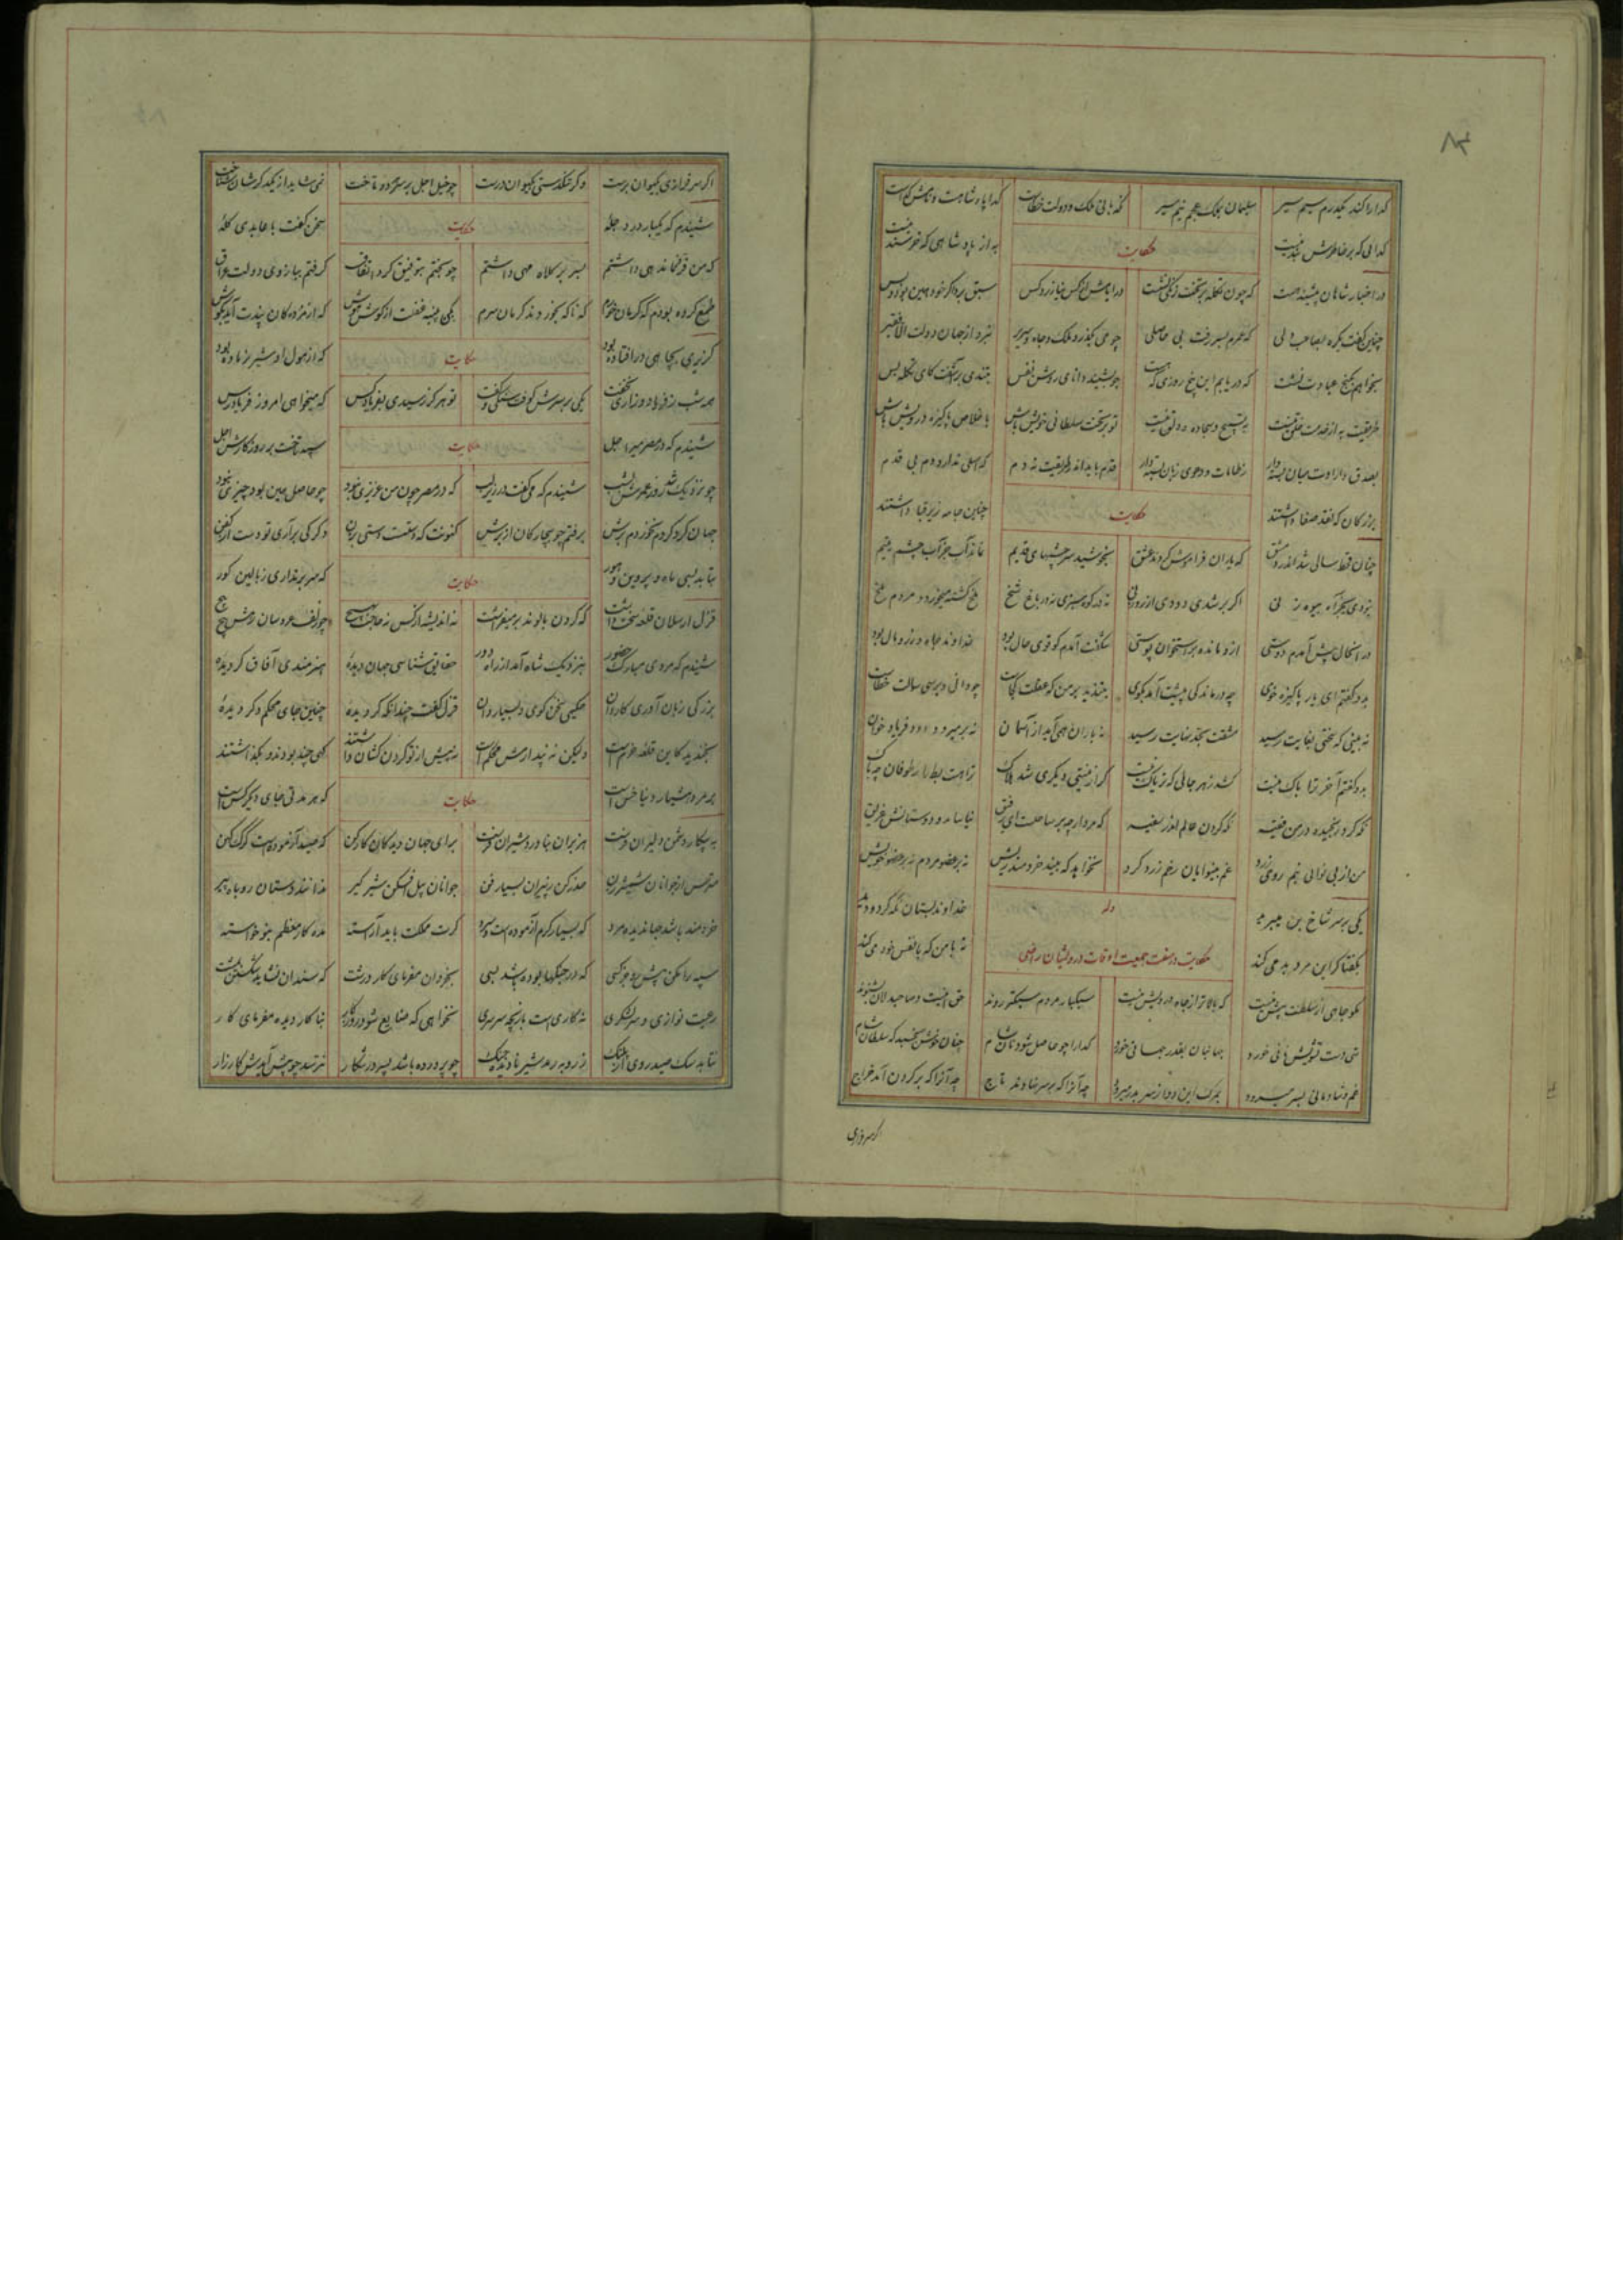 گدا را کند یکدرم سیم سیر سلیمان بملک عجم نیم سیر نگهبانی ملک و دولت خطاست گدا پادشاهست و نامش گداست
گدائی که بر خاطرش بند نیست
حکایت
به از پادشاهی که خرسند نیست
در اخبار شاهان پیشینه هست که چون تکله بر تخت زنگی نشست در ایامش از کس نیازرد کس سبق برد اگر خود همین بود و بس
چنین گفت یکره بصاحبدلی که عمرم بسر رفت بی حاصلی چو می بگذرد ملک و جاه و سریر نبرد از جهان دولت الا فقیر
بخواهم بکنج عبادت نشست که دریابم این پنج روزی که هست چو بشنید دانای روشن نفس بتندی برآشفت کای تکله بس
طریقت به از خدمت خلق نیست به تسبیح و سجاده و دلق نیست تو بر تخت سلطانی خویش باش باخلاص پاکیزه درویش باش
بصدق و ارادت میان بسته دار ز طامات و دعوی زبان بسته دار قدم باید اندر طریقت نه دم که اصلی ندارد دم بی قدم
بزرگان که نقد صفا داشتند
حکایت
چنین جامه زیر قبا داشتند
چنان قحط سالی شد اندر دمشق که یاران فراموش کردند عشق بخوشید سرچشمهای قدیم نماند آب جز آب چشم یتیم
نبودی بجز آه بیوه زنی اگر بر شدی دودی از روزنی نه در کوه سبزی نه در باغ شخ ملخ کشته میخورد و مردم ملخ
در آنحال پیش آمدم دوستی ازو مانده بر استخوان پوستی شگفت آمدم کو قوی حال بود خداوند جاه و زر و مال بود
بدو گفتم ای یار پاکیزه خوی چه درماندگی پیشت آمد بگوی بتندید بر من که عقلت کجاست چو دانی و پرسی سوالت خطاست
نه بینی که سختی بغایت رسید مشقت بحد نهایت رسید نه باران همی آید از آسمان نه بر میرود دود فریاد خوان
بدو گفتم آخر ترا باک نیست کشد زهر جائی که تریاک نیست گر از نیستی دیگری شد هلاک ترا هست بط را ز طوفان چه باک
نگه کرد رنجیده در من فقیه نگه کردن عالم اندر سفیه که مرد ار چه بر ساحلست ای رفیق نیاساید و دوستانش غریق
من از بی نوائی نیم روی زرد غم بینوایان رخم زرد کرد نخواهد که بیند خردمند ریش نه بر عضو مردم نه بر عضو خویش
یکی بر سر شاخ بن میبرید
وله
خداوند بستان نگه کرد و دید
بگفتا گر این مرد بد می کند
حکایت در صفت جمعیت اوقات درویشان راضی
نه با من که با نفس خود می کند
مگو جاهی از سلطنت بیش نیست که بالاتر از جاه درویش نیست سبکبار مردم سبکتر روند حق اینست و صاحبدلان بشنوند
تهی دست تشویش نانی خورد جهانبان بقدر جهانی خورد گدا را چو حاصل شود نان شام چنان خوش بخسبد که سلطان شام
غم و شادمانی بسر میرود بمرگ این دو از سر بدر میرود چه آنرا که بر سر نهادند تاج چه آنرا که بر گردن آمد خراج
اگر سرفرازی
اگر سرفرازی بکیوان برست وگر تنگدستی بکیوان درست چو خیل اجل بر سر هر دو تاخت نمی شاید از یکدگرشان شناخت
شنیدم که یکبار در دجله
حکایت
سخن گفت با عابدی کله
که من فر فرماندهی داشتم بسر بر کلاه مهی داشتم چو بختم بتوفیق کرد اتفاق گرفتم ببازوی دولت عراق
طمع کرده بودم که کرمان خورم که ناگه بخوردند کرمان سرم بکن پنبه غفلت از گوش هوش که از مردگان پندت آید بگوش
گزیری بچاهی در افتاده بود
حکایت
که از هول او شیر نر ماده بود
همه شب ز فریاد و زاری نخفت یکی بر سرش کوفت سنگی و گفت تو هرگز رسیدی بفریاد کس که میخواهی امروز فریادرس
شنیدم که در مصر میر اجل
حکایت
سپه تاخت بر روزگارش اجل
چو نزدیک شد روز عمرش بشب شنیدم که می گفت در زیر لب که در مصر چون من عزیزی نبود چو حاصل همین بود چیزی نبود
جهان گرد کردم نخوردم برش برفتم چو بیچارگان از برش کنونت که دستست دستی بزن دگر کی برآری تو دست از کفن
بتابد بسی ماه و پروین و هور
حکایت
که سر برنداری ز بالین گور
قزل ارسلان قلعه سخت داشت که گردن بالوند بر میفراشت نه اندیشه از کس نه حاجت بهیچ چو زلف عروسان رهش پیچ پیچ
شنیدم که مردی مبارک حضور بنزدیک شاه آمد از راه دور حقایق شناسی جهان دیده هنرمندی آفاق گردیده
بزرگی زبان آوری کاردان حکیمی سخن گوی و بسیار دان قزل گفت چندانکه گردیده چنین جای محکم دگر دیده
بخندید کاین قلعه خرم است ولیکن نه پندارمش محکم است نه پیش از تو گردن کشان داشتند گهی چند بودند و بگذاشتند
بر مرد هشیار دنیا خس است
حکایت
که هر مدتی جای دیگر کس است
به پیکار دشمن دلیران فرست هزبران بناورد شیران فرست برای جهان دیدگان کار کن که صید آزمودست گرگ کهن
مترس از جوانان شمشیر زن حذر کن ز پیران بسیار فن جوانان پیل افکن شیر گیر ندانند دستان روباه پیر
خردمند باشد جهاندیده مرد که بسیار گرم آزموده است و سرد گرت مملکت باید آراسته مده کار معظم بنوخواسته
سپه را مکن پیش رو جز کسی که در جنگها بوده باشد بسی بخردان مفرمای کار درشت که سندان نشاید شکستن بمشت
رعیت نوازی و سرلشکری نه کاری است بازیچه و سرسری نخواهی که ضایع شود روزگار بناکار دیده مفرمای کار
نتابد سگ صید روی از پلنگ ز روبه رمد شیر نادیده جنگ چو پرورده باشد پسر در شکار نترسد چو پیش آیدش کارزار